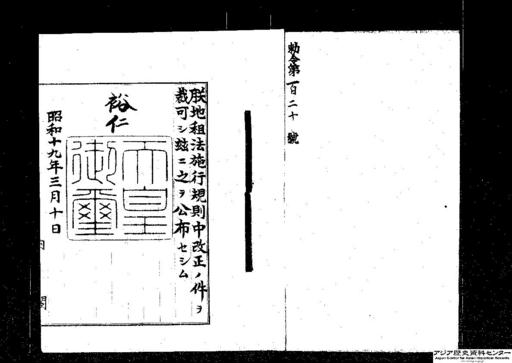 勅令第百二十號
朕地租法施行規則中改正ノ件ヲ
裁可シ玆ニ之ヲ公布セシム
裕仁
天皇御璽
昭和十九年三月十日
内閣
アジア歴史資料センター
Japan Center for Asian Historical Records